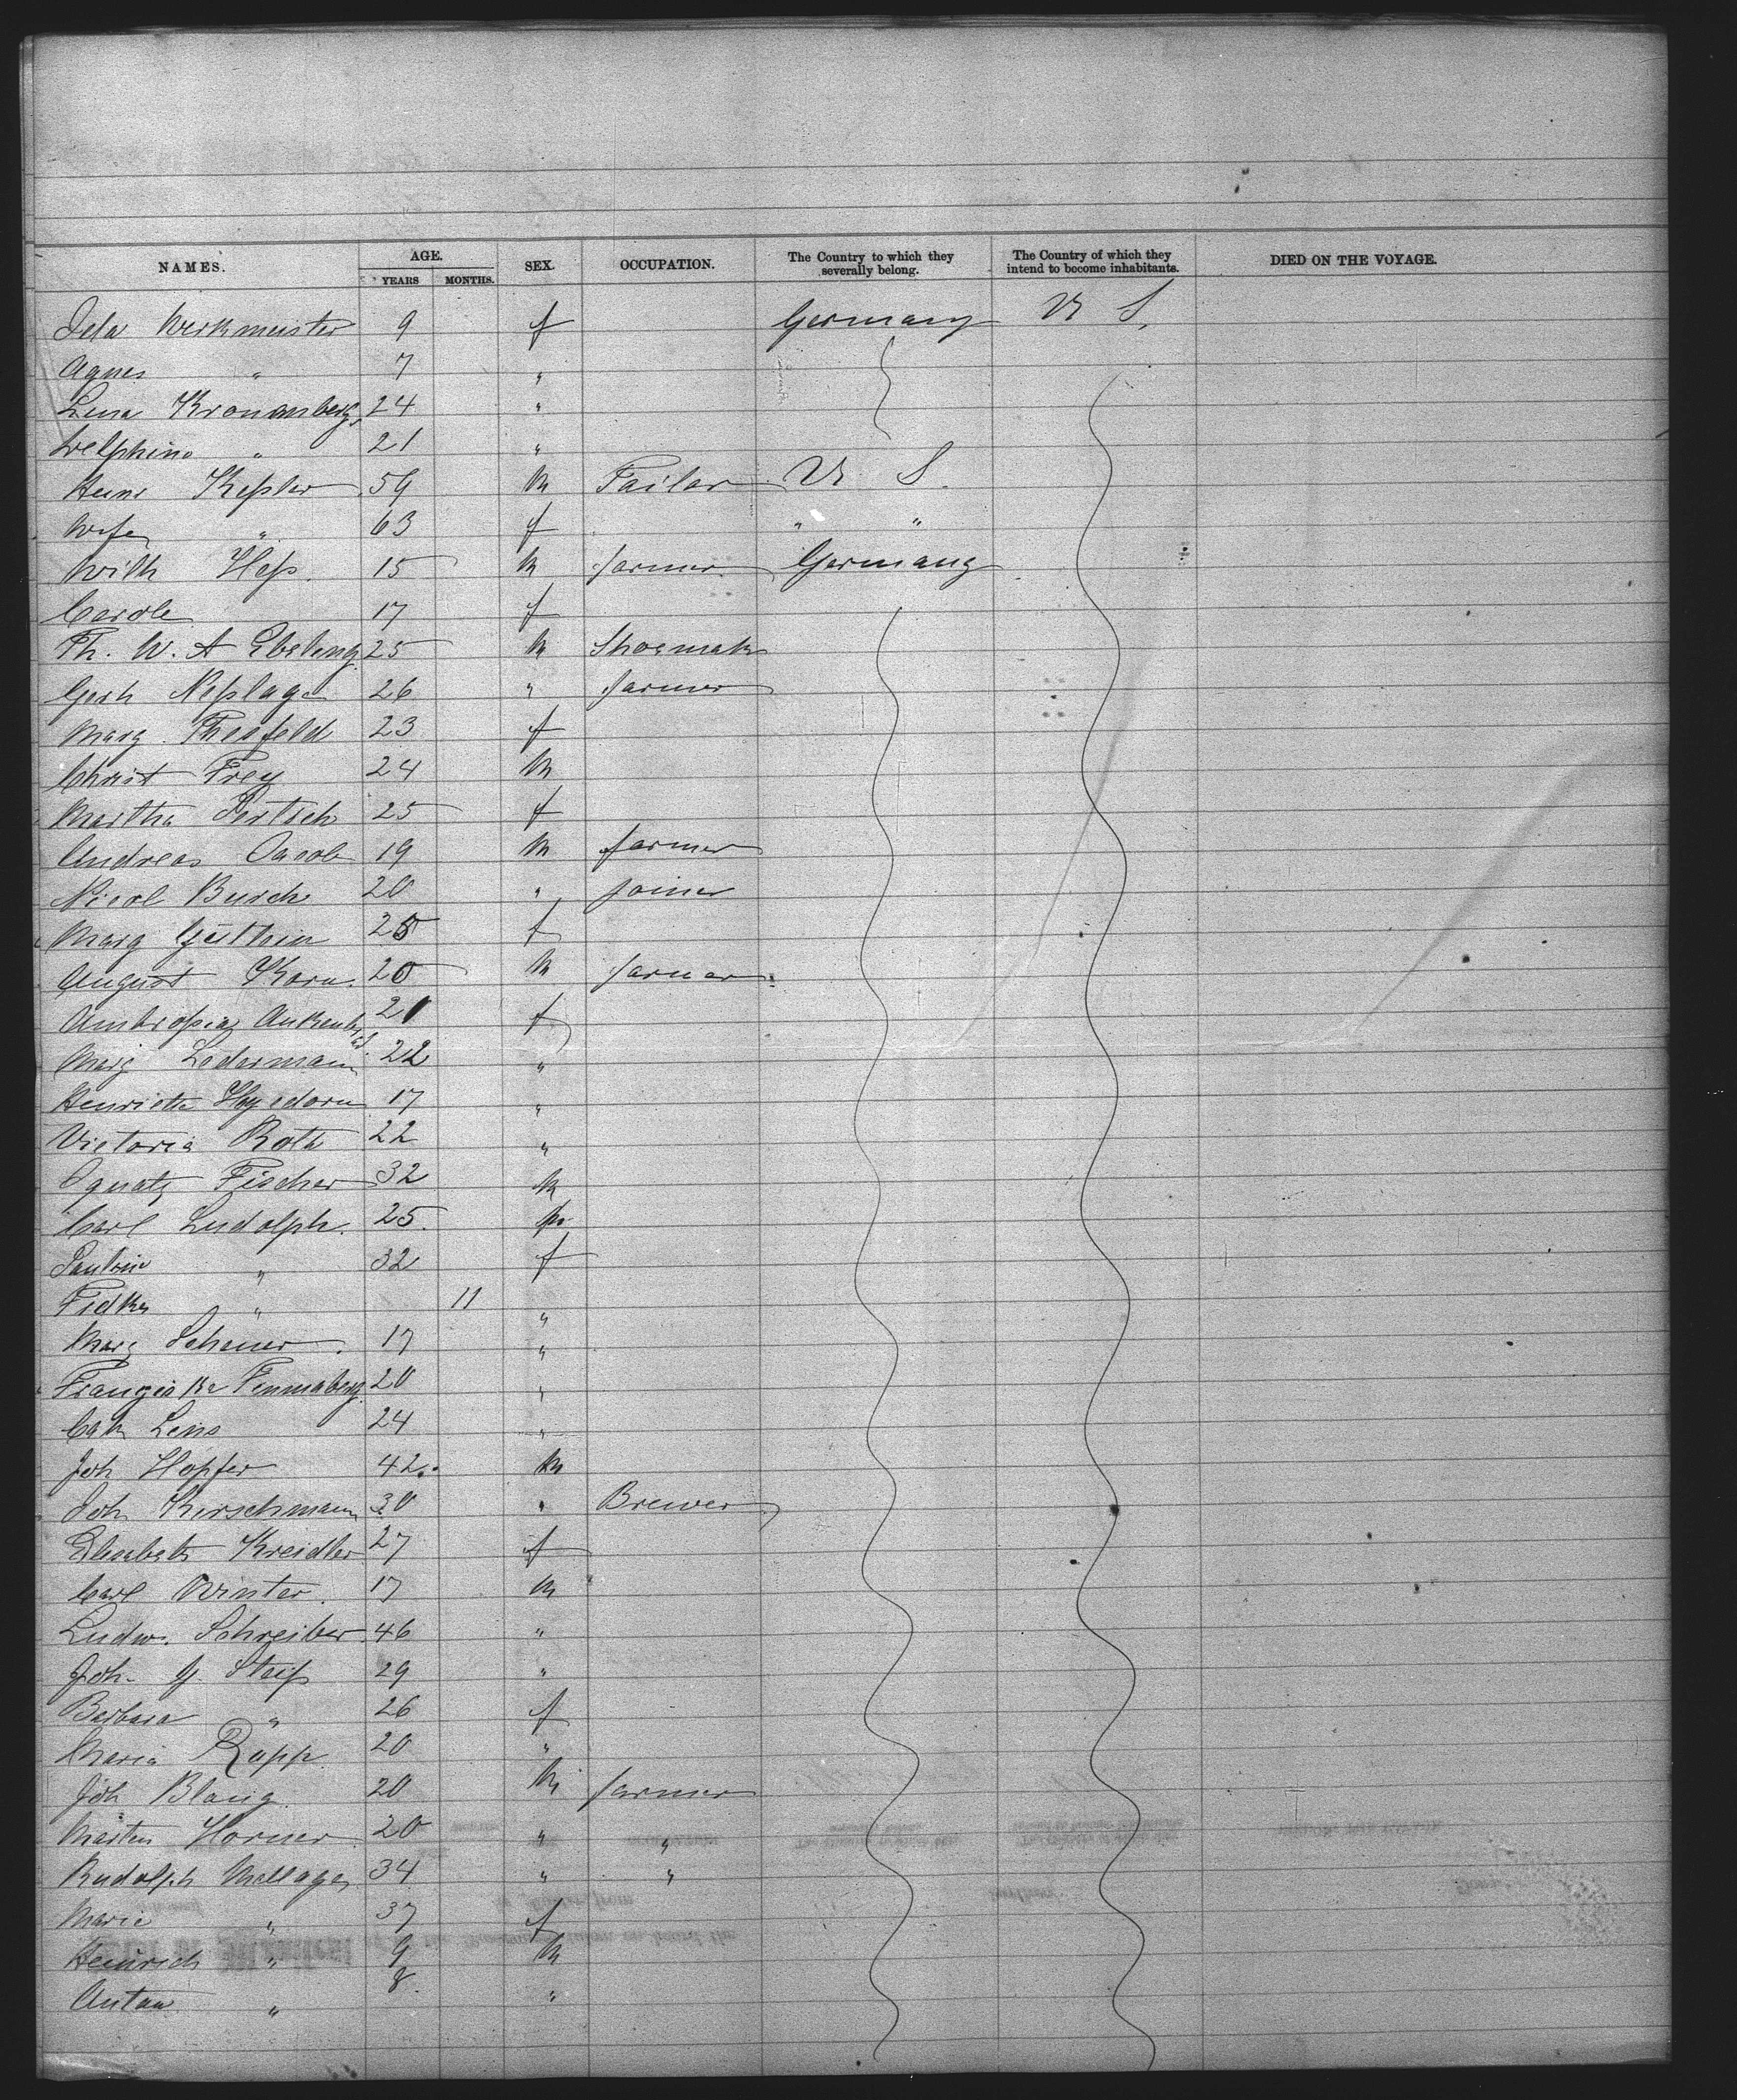 NAMES. AGE. YEARS MONTHS. SEX. OCCUPATION. The Country to which they severally belong. The Country of which they intend to become inhabitants. DIED ON THE VOYAGE.
Ida Werkmeister 9 f Germany U S.
Agnes " 7 "
Lina Kronenberg 24 "
Delphine " 21 "
Heinr Kepler 59 m Tailor U S.
Wife " 63 f " "
Wilh Heß 15 m farmer Germany
Carole 17 f
Th. W. A Ebeling 25 m Shoemak
Gerh Neplage 26 " farmer
Marg. Thesfeld 23 f
Christ Frey 24 m
Martha Pertsch 25 f
Andreas Jacob 19 m farmer
Nicol Busch 20 " joiner
Marg 25 f
August Korn. 20 m farmer
21 f
Marg Ledermann 22 "
Henriette Hagedorn 17 "
Victoria Roth 22 "
Ignatz Fischer 32 m
Carl Ludolph. 25. m
Pauline " 32 f
" 11 "
Marg Scheuer. 17 "
Franziska 20 "
Cath Lens 24 "
Joh Hopfer 42. m
Joh Kirschmann 30 " Brewer
Elisabeth Kreidler 27 f
Carl Winter. 17 m
Ludw. Schreiber 46 "
Joh. G. Steiß 29 "
Barbara " 26 f
Maria Rapp. 20 "
Joh Blaug 20 m farmer
Martin Horner 20 " "
Rudolph Mellage 34 " "
Marie " 37 f
Heinrich " 9 m
Anton " 8. "